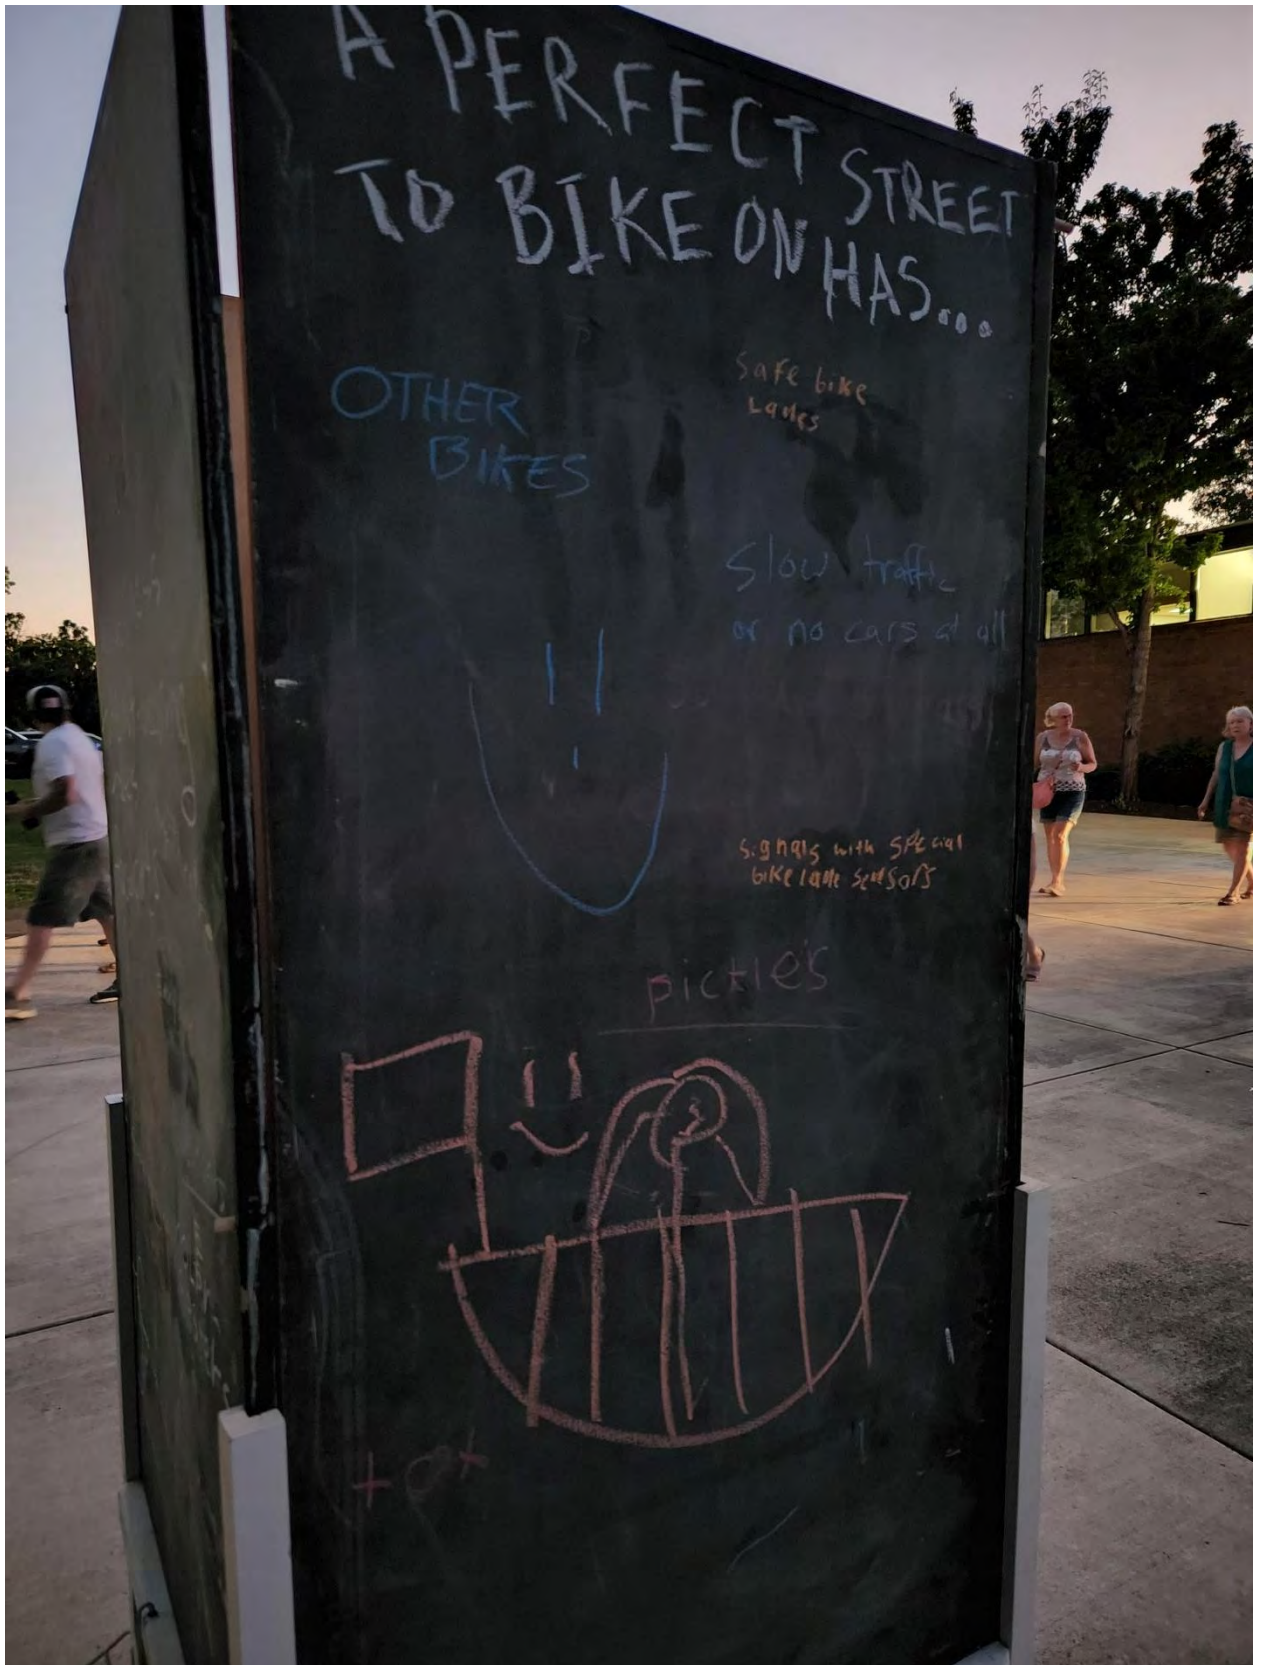 A PERFECT STREET
TO BIKE ON HAS...
OTHER
BIKES
Safe bike
Lanes
Slow traffic
or no cars at all
signals with special
bike lane sensors
pickles